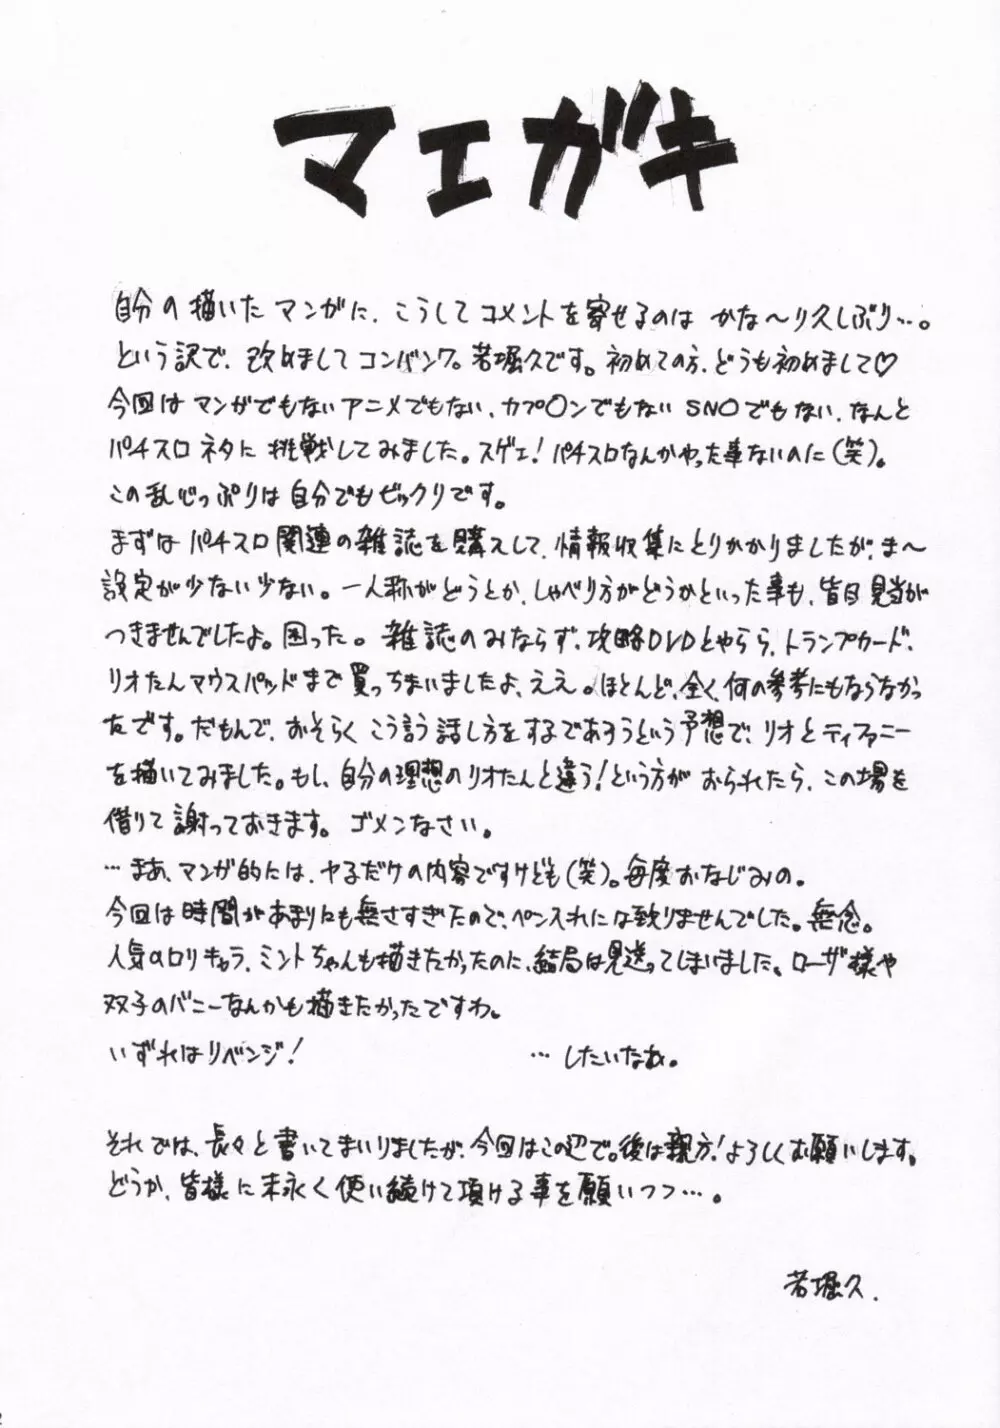 マエガキ
自分の描いたマンガに、こうしてコメントを寄せるのは かな〜り久しぶり…。
という訳で、改めましてコンバンワ。若堀久です。初めての方、どうも初めまして♡
今回はマンガでもないアニメでもない、カプ〇ンでもないSNOでもない、なんと
パチスロネタに挑戦してみました。スゲェ!パチスロなんかやった事ないのに(笑)。
この乱心っぷりは自分でもビックリです。
まずはパチスロ関連の雑誌を購入して、情報収集にとりかかりましたが、ま〜
設定が少ない少ない。一人称がどうとか、しゃべり方がどうかといった事も、皆目見当が
つきませんでしたよ。困った。雑誌のみならず、攻略DVDとやらら、トランプカード、
リオたんマウスパッドまで買っちまいましたよ、ええ。ほとんど、全く、何の参考にもならなかっ
たです。だもんで、おそらくこう言う話し方をするであろうという予想で、リオとティファニー
を描いてみました。もし、自分の理想のリオたんと違う!という方がおられたら、この場を
借りて謝っておきます。ゴメンなさい。
…まあ、マンガ的には、ヤるだけの内容ですけども(笑)。毎度おなじみの。
今回は時間があまりにも無さすぎたので、ペン入れには致りませんでした。無念。
人気のロリキャラ、ミントちゃんも描きたかったのに、結局は見送ってしまいました。ローザ様や
双子のバニーなんかも描きたかったですわ。
いずれはリベンジ! …したいなぁ。
それでは、長々と書いてまいりましたが、今回はこの辺で。後は親方!よろしくお願いします。
どうか、皆様に末永く使い続けて頂ける事を願いつつ…。
若堀久.
2